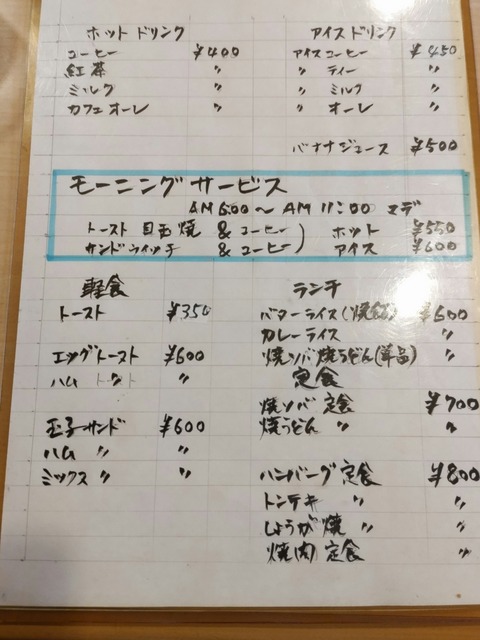 ホット ドリンク
コーヒー ¥400
紅茶 〃
ミルク 〃
カフェオーレ 〃
アイス ドリンク
アイスコーヒー ¥450
〃 ティー 〃
〃 ミルク 〃
〃 オーレ 〃
バナナジュース ¥500
モーニング サービス
AM 6:00 〜 AM 11:00 マデ
トースト 目玉焼 & コーヒー) ホット ¥550
サンドウイッチ & コーヒー) アイス ¥600
軽食
トースト ¥350
エッグトースト ¥600
ハム トースト 〃
玉子サンド ¥600
ハム 〃 〃
ミックス 〃 〃
ランチ
バターライス(焼飯) ¥600
カレーライス 〃
焼ソバ 焼うどん(単品) 〃
定食
焼ソバ 定食 ¥700
焼うどん 〃 〃
ハンバーグ 定食 ¥800
トンテキ 〃 〃
しょうが焼 〃 〃
焼肉 定食 〃